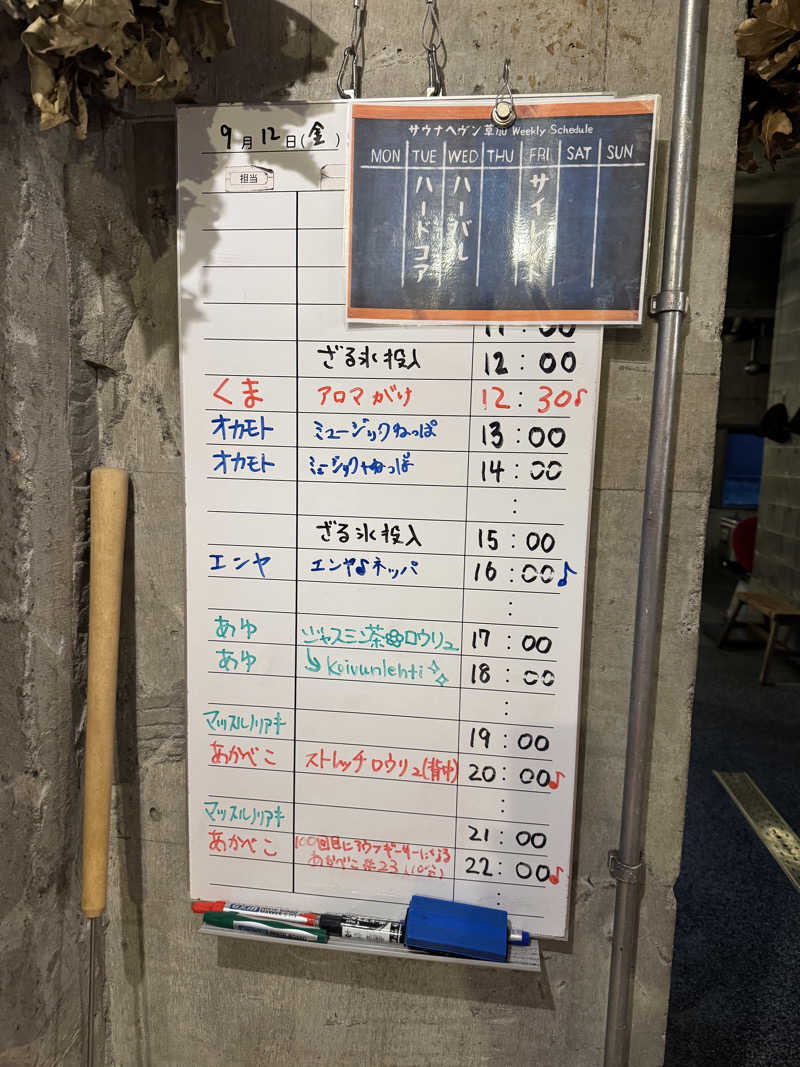 9月12日(金)
担当
サウナヘヴン草加 Weekly Schedule
MON TUE WED THU FRI SAT SUN
ハードコア
ハーバル
サイレント
11:00
ざる氷投入 12:00
くま アロマがけ 12:30♪
オカモト ミュージックねっぱ 13:00
オカモト ミュージックねっぱ 14:00
:
ざる氷投入 15:00
エンヤ エンヤ♪ネッパ 16:00♪
:
あゆ ジャスミン茶ロウリュ 17:00
あゆ ↳ Koivunlehti 18:00
:
マッスルノリアキ 19:00
あかべこ ストレッチロウリュ(背中) 20:00♪
:
マッスルノリアキ 21:00
あかべこ 100回目にアウフギーサーになる
あかべこ #23 (10分) 22:00♪
: